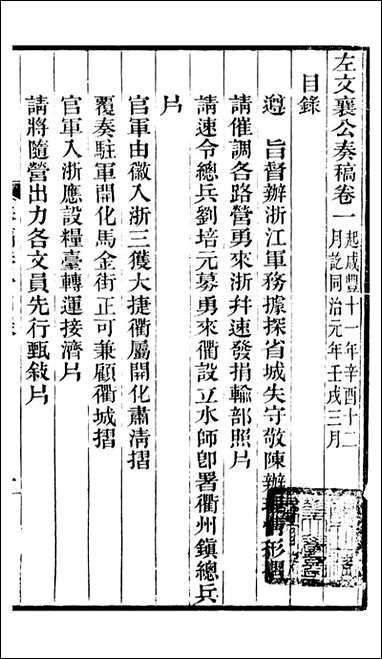 左文襄公奏稿卷一起咸豐十一年辛酉十二
月訖同治元年壬戌三月
目錄
遵　旨督辦浙江軍務據探省城失守敬陳辦理情形摺
請催調各路營勇來浙幷速發捐輸部照片
請速令總兵劉培元募勇來衢設立水師卽署衢州鎮總兵
片
官軍由徽入浙三獲大捷衢屬開化肅清摺
覆奏駐軍開化馬金街正可兼顧衢城摺
官軍入浙應設糧臺轉運接濟片
請將隨營出力各文員先行甄敍片